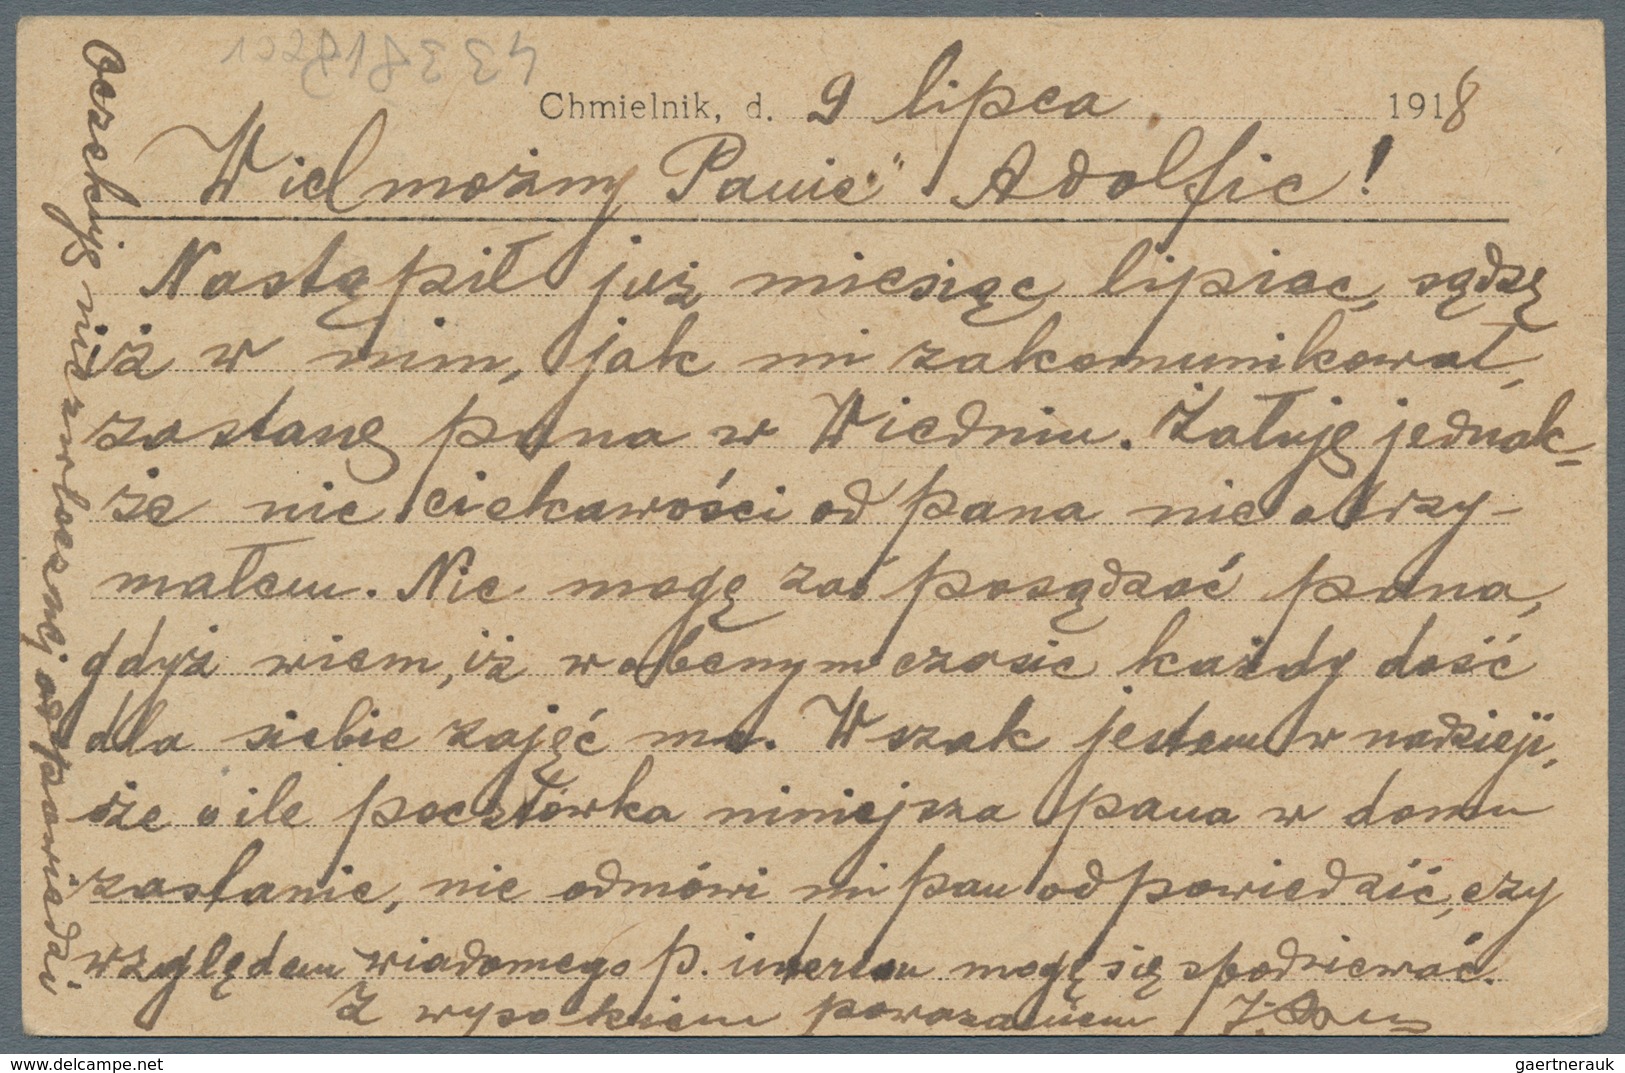 433818201
Chmielnik, d. 9 lipca 1918
Wielmożny Panie Adolfie!
Nastąpił już miesiąc lipiec, sądzę
iż w nim, jak mi zakomunikował,
zostanę pana w Wiedniu. Żałuję jednak-
że nic ciekawości od pana nie otrzy-
małem. Nie mogę zaś posądzać pana,
gdyż wiem, iż w obenym czasie każdy dość
dla siebie zajęć ma. Wszak jestem w nadzieji,
że o ile pocztówka niniejsza pana w domu
zastanie, nie odmówi mi pan odpowiedzić, czy
względem wiadomego p. interesu mogę się spodziewać.
Z wysokiem poważaniem
Oczekuję niezwłocznej odpowiedzi
www.delcampe.net
gaertnerauk